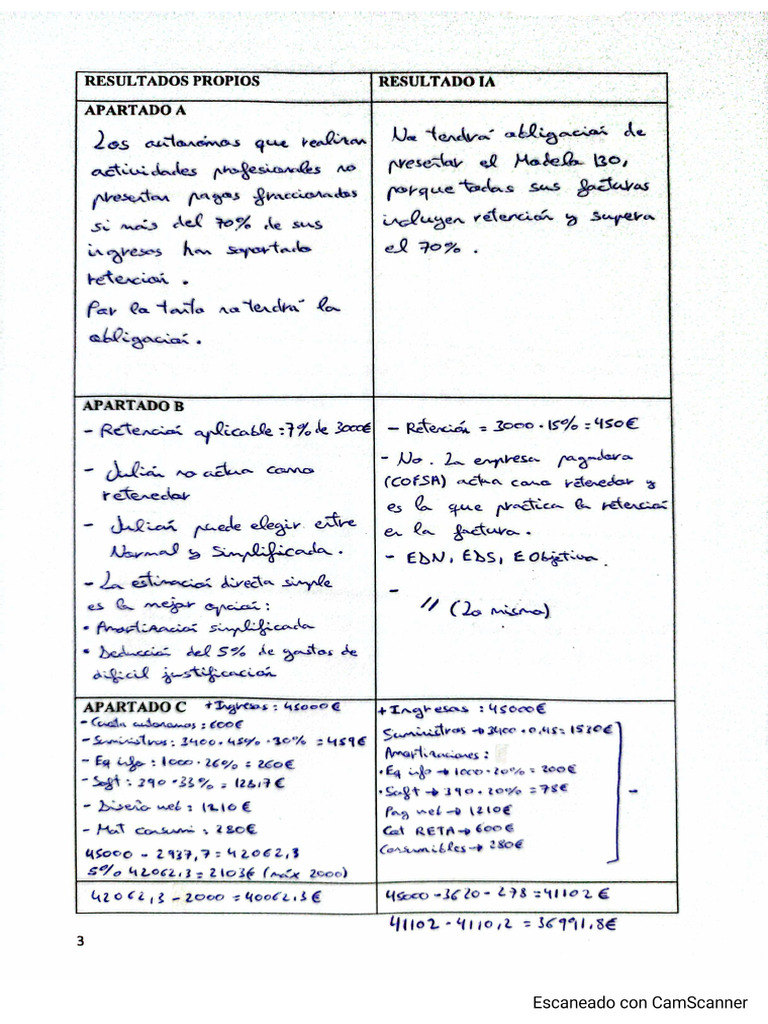 RESULTADOS PROPIOS
RESULTADO IA
APARTADO A
Los autónomos que realizan
actividades profesionales no
presentan pagos fraccionados
si más del 70% de sus
ingresos han soportado
retención.
Por lo tanto no tendrá la
obligación.
No tendrá obligación de
presentar el Modelo 130,
porque todas sus facturas
incluyen retención y supera
el 70%.
APARTADO B
- Retención aplicable: 7% de 3000€
- Julián no actua como
retenedor
- Julián puede elegir entre
Normal y Simplificada.
- La estimación directa simple
es la mejor opción:
• Amortización simplificada
• Deducción del 5% de gastos de
dificil justificación
- Retención = 3000 · 15% = 450€
- No. La empresa pagadora
(COFSA) actua como retenedor y
es la que practica la retención
en la factura.
- EDN, EDS, E Objetiva.
- // (Lo mismo)
APARTADO C + Ingresos: 45000€
- Cuota autonomos: 600€
- Suministros: 3400 · 45% · 30% = 459€
- Eq info: 1000 · 26% = 260€
- Soft: 390 · 33% = 128,7€
- Diseño web: 1210€
- Mat consumi: 280€
45000 - 2937,7 = 42062,3
5% 42062,3 = 2103€ (máx 2000)
42062,3 - 2000 = 40062,3€
+ Ingresos: 45000€
Suministros → 3400 · 0,45 = 1530€
Amortizaciones:
• Eq info → 1000 · 20% = 200€
• Soft → 390 · 20% = 78€
Pag web → 1210€
Cot RETA → 600€
Consumibles → 280€
-
45000 - 3620 - 278 = 41102€
41102 - 4110,2 = 36991,8€
3
Escaneado con CamScanner